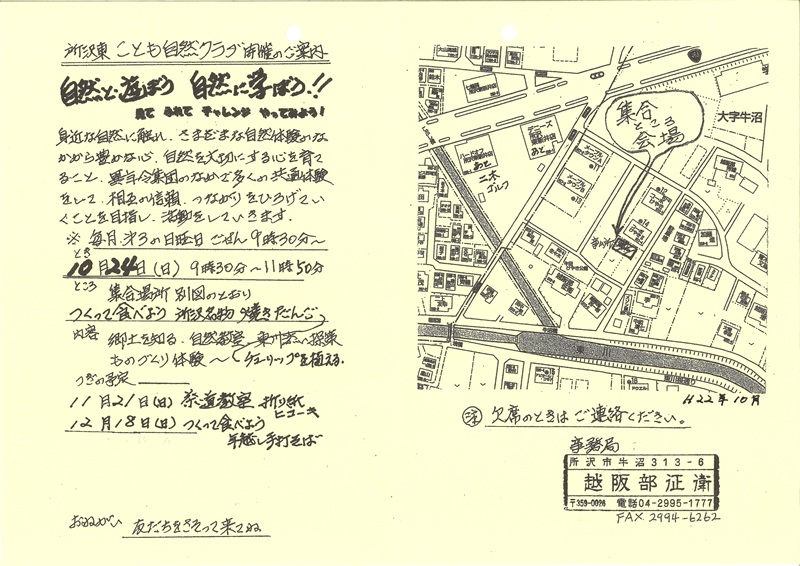 所沢東 こども自然クラブ開催のご案内
自然と遊ぼう 自然に学ぼう!!
見て ふれて チャレンジ やってみよう!
身近な自然に触れ、さまざまな自然体験のな
かから豊かな心、自然を大切にする心を育て
ること、異年令集団のなかで多くの共通体験
をして、相互の信頼、つながりをひろげてい
くことを目指し、活動をしていきます。
※ 毎月、第3の日曜日 ごぜん9時30分~
とき
10月24日(日) 9時30分~11時50分
ところ 集合場所 別図のとおり
つくって食べよう 所沢名物 焼きだんご
内容 郷土を知る、自然教室、東川 探索
ものづくり体験~ チューリップを植える。
つぎの予定
11月21日(日) 茶道教室 折り紙
ヒコーキ
12月18日(日) つくって食べよう
年越し手打そば
おねがい 友だちをさそって来てね
集合
ところ
会場
大字牛沼
デニーズ
あと
あと
二木
ゴルフ
メープル
メープル
11
13
12
14
16
18
東川
H22年10月
注 欠席のときはご連絡ください。
事務局
所沢市牛沼313-6
越阪部征衛
〒359-0026 電話04-2995-1777
FAX 2994-6262